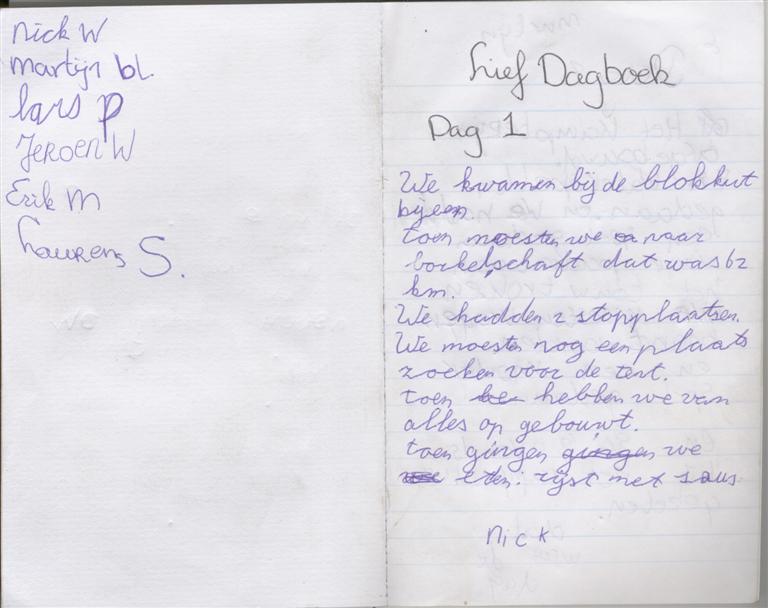 Nick W
Martijn bl.
lars p
Jeroen W
Erik M
Laurens S.
Lief Dagboek
Dag 1
We kwamen bij de blokhut
bijeen
toen moesten we naar
borkelschaft dat was 62
km.
We hadden 2 stopplaatsen.
We moesten nog een plaats
zoeken voor de tent.
toen hebben we van
alles op gebouwt.
toen gingen gingen we
eten: rijst met saus
Nick